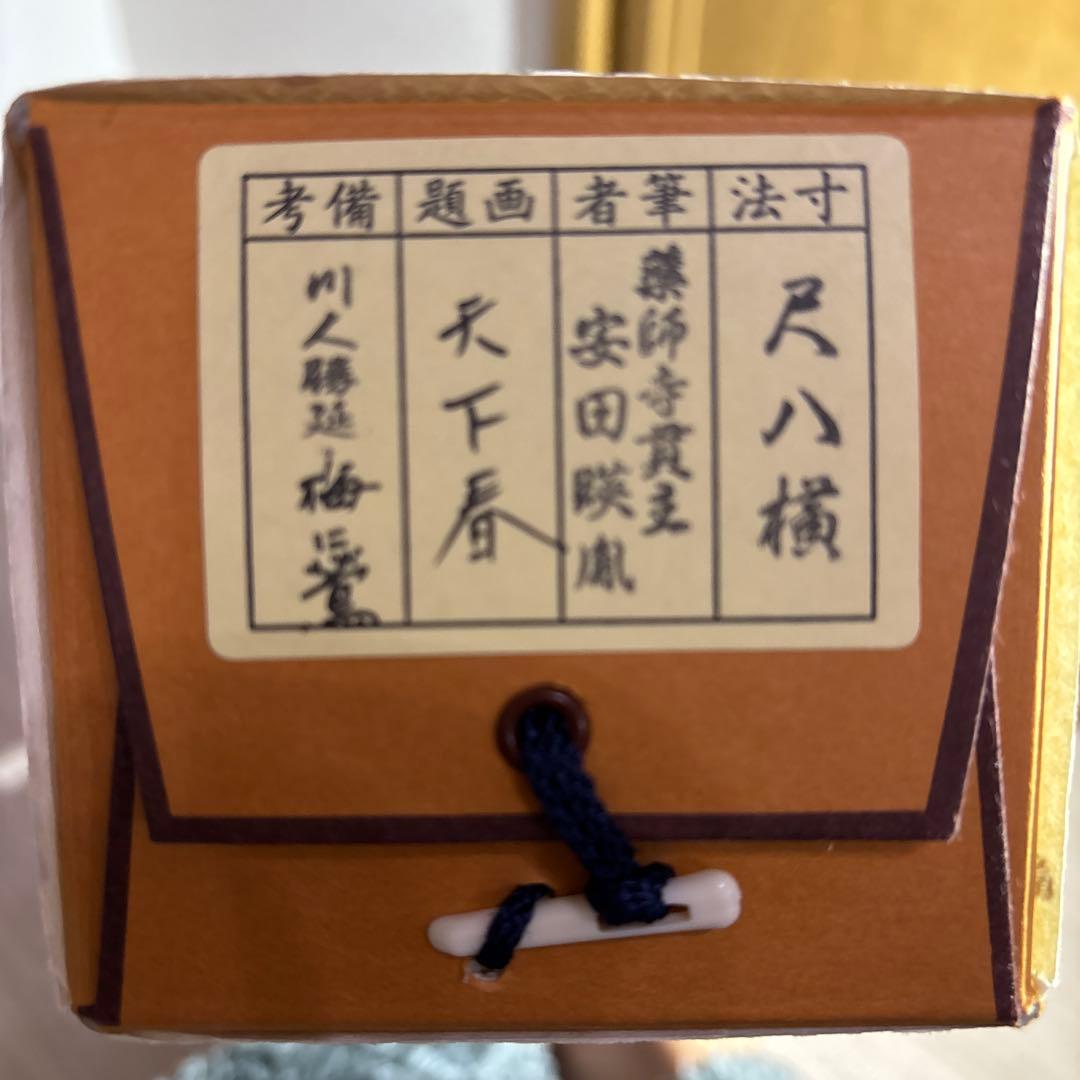 寸法
尺八横
筆者
薬師寺貫主
安田暎胤
画題
天下春
備考
川人勝延
梅に鶯